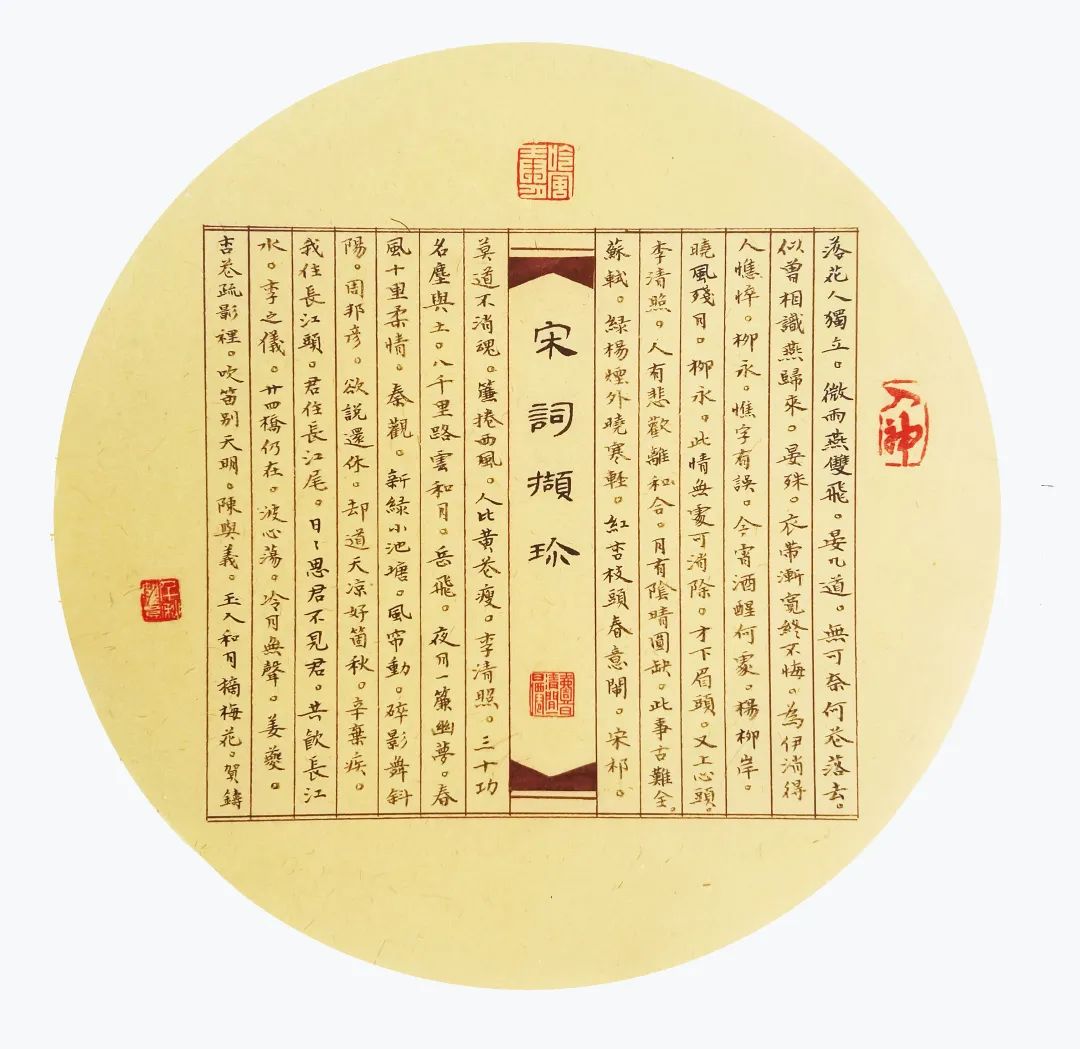 落花人獨立。微雨燕雙飛。晏几道。無可奈何花落去。
似曾相識燕歸來。晏殊。衣帶漸寬終不悔。為伊消得
人憔悴。柳永。憔字有誤。今宵酒醒何處。楊柳岸。
曉風殘月。柳永。此情無處可消除。才下眉頭。又上心頭。
李清照。人有悲歡離和合。月有陰晴圓缺。此事古難全。
蘇軾。綠楊煙外曉寒輕。紅杏枝頭春意鬧。宋祁。
宋詞擷珍
莫道不消魂。簾捲西風。人比黃花瘦。李清照。三十功
名塵與土。八千里路雲和月。岳飛。夜月一簾幽夢。春
風十里柔情。秦觀。新綠小池塘。風帘動。碎影舞斜
陽。周邦彥。欲說還休。却道天凉好箇秋。辛棄疾。
我住長江頭。君住長江尾。日〻思君不見君。共飲長江
水。李之儀。廿四橋仍在。波心蕩。冷月無聲。姜夔。
杏花疏影裡。吹笛别天明。陳與義。玉人和月摘梅花。賀鑄